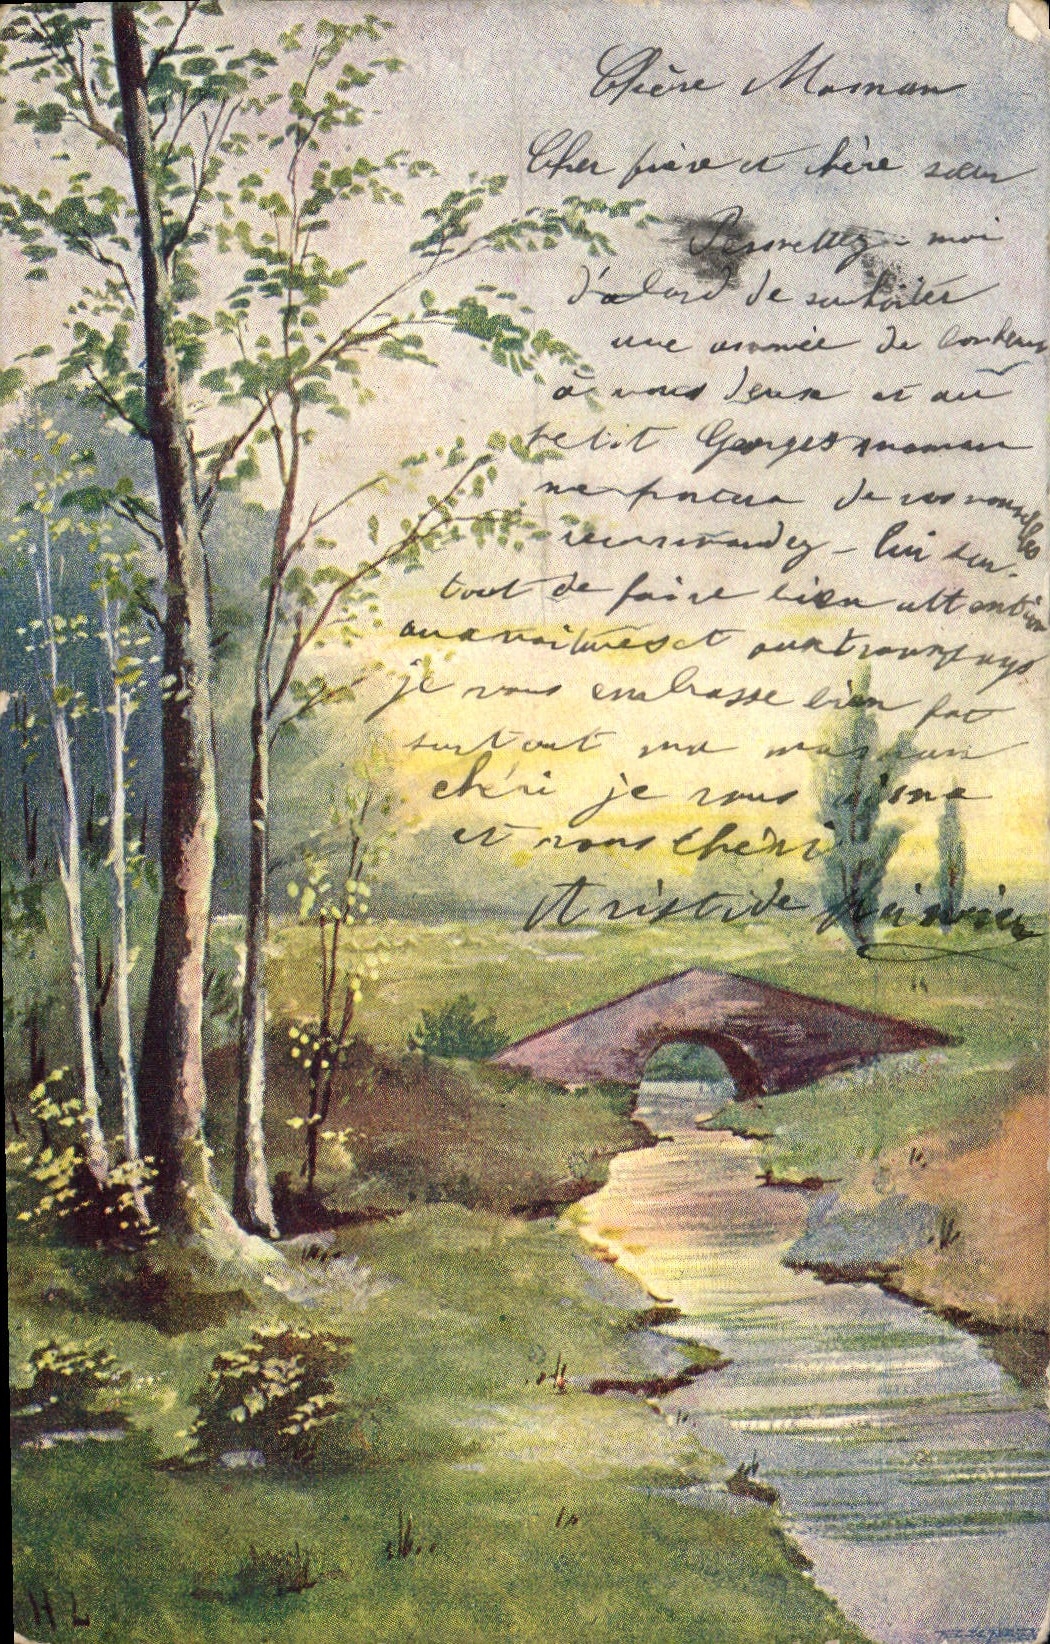 Chère Maman
Cher frère et chère sœur
Permettez-moi
d'abord de souhaiter
une année de bonheur
à vous deux et au
petit Georges maman
me portera de vos nouvelles
recommandez-lui sur-
tout de faire bien attention
aux voitures et aux tramways
je vous embrasse bien fort
surtout ma maman
chéri je vous aime
et vous chéri
Aristide
H L